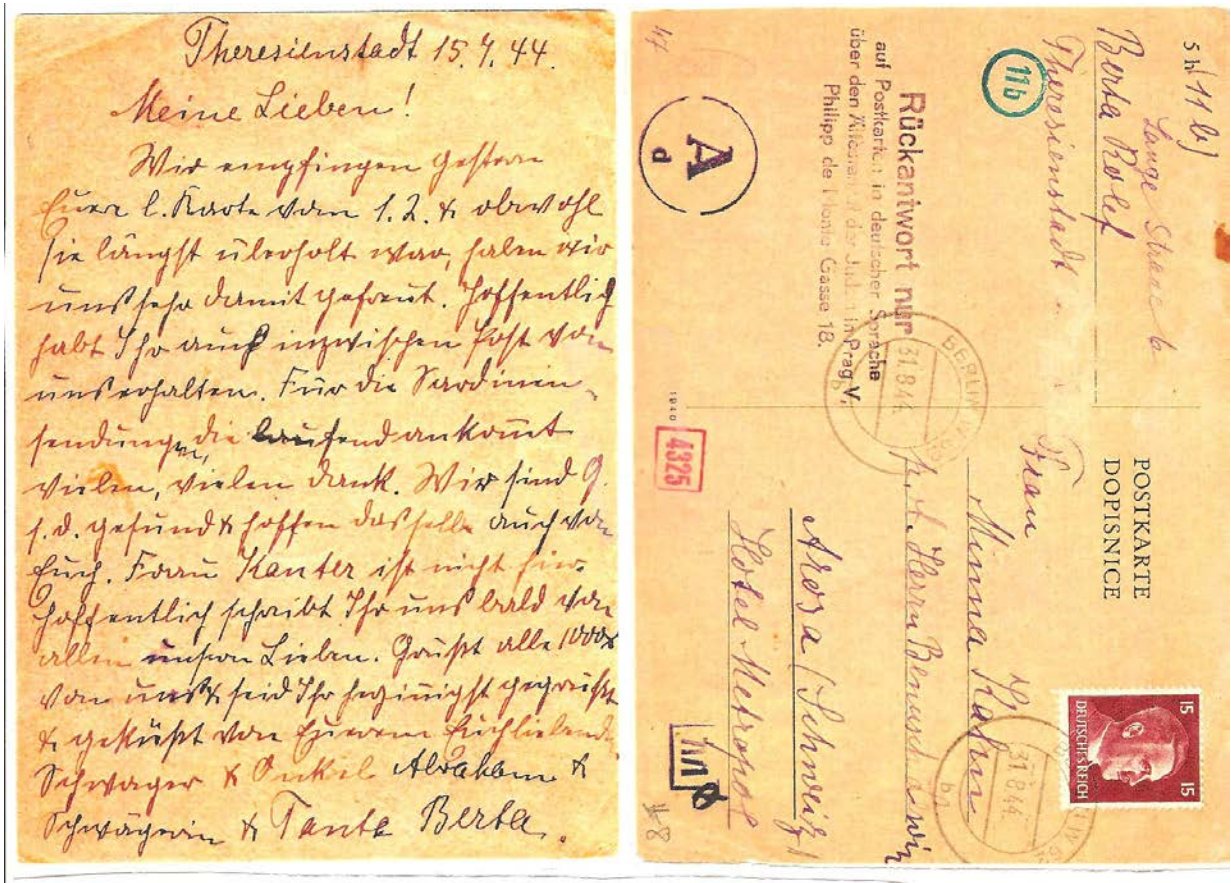 Theresienstadt 15.4.44.
Meine Lieben!
Wir empfingen gestern
Euere l. Karte vom 1.2. & obwohl
sie längst überholt war, haben wir
uns sehr damit gefreut. Hoffentlich
habt Ihr auch inzwischen Post von
uns erhalten. Für die Sardinen-
sendungen, die laufend ankomt
vielen, vielen Dank. Wir sind G.
s. d. gesund & hoffen dasselbe auch von
Euch. Frau Kanter ist nicht hier.
Hoffentlich schreibt Ihr uns bald von
allen unseren Lieben. Grüßt alle 1000x
von uns & seid Ihr herzinnigst gegrüßt
& geküßt von Eurem Euch liebenden
Schwager & Onkel Abraham &
Schwägerin & Tante Berta.
5 h/11b)
Lange Strasse
Berta Rolef
Theresienstadt
11b
47
Rückantwort nur
auf Postkarten in deutscher Sprache
über den Ältesten der Juden in Prag V,
Philipp de Monte Gasse 18.
A
d
BERLIN
31.8.44
1940
4325
POSTKARTE
DOPISNICE
Frau
Minna Kahn
p. A. Herrn
Arosa (Schweiz)
Hotel Metropol
15 15
DEUTSCHES REICH
31.8.44